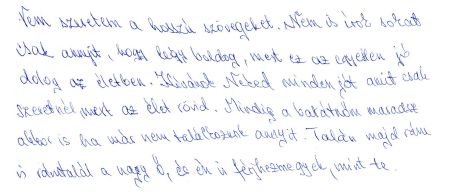 Nem szeretem a hosszú szövegeket. Nem is írok sokat
csak annyit, hogy légy boldog, mert ez az egyetlen jó
dolog az életben. Kívánok Neked minden jót amit csak
szeretnél mert az élet rövid. Mindig a barátnőm maradsz
akkor is ha már nem találkozunk annyit. Talán majd rám
is rámtalál a nagy Ő, és én is férjhezmegyek, mint te.